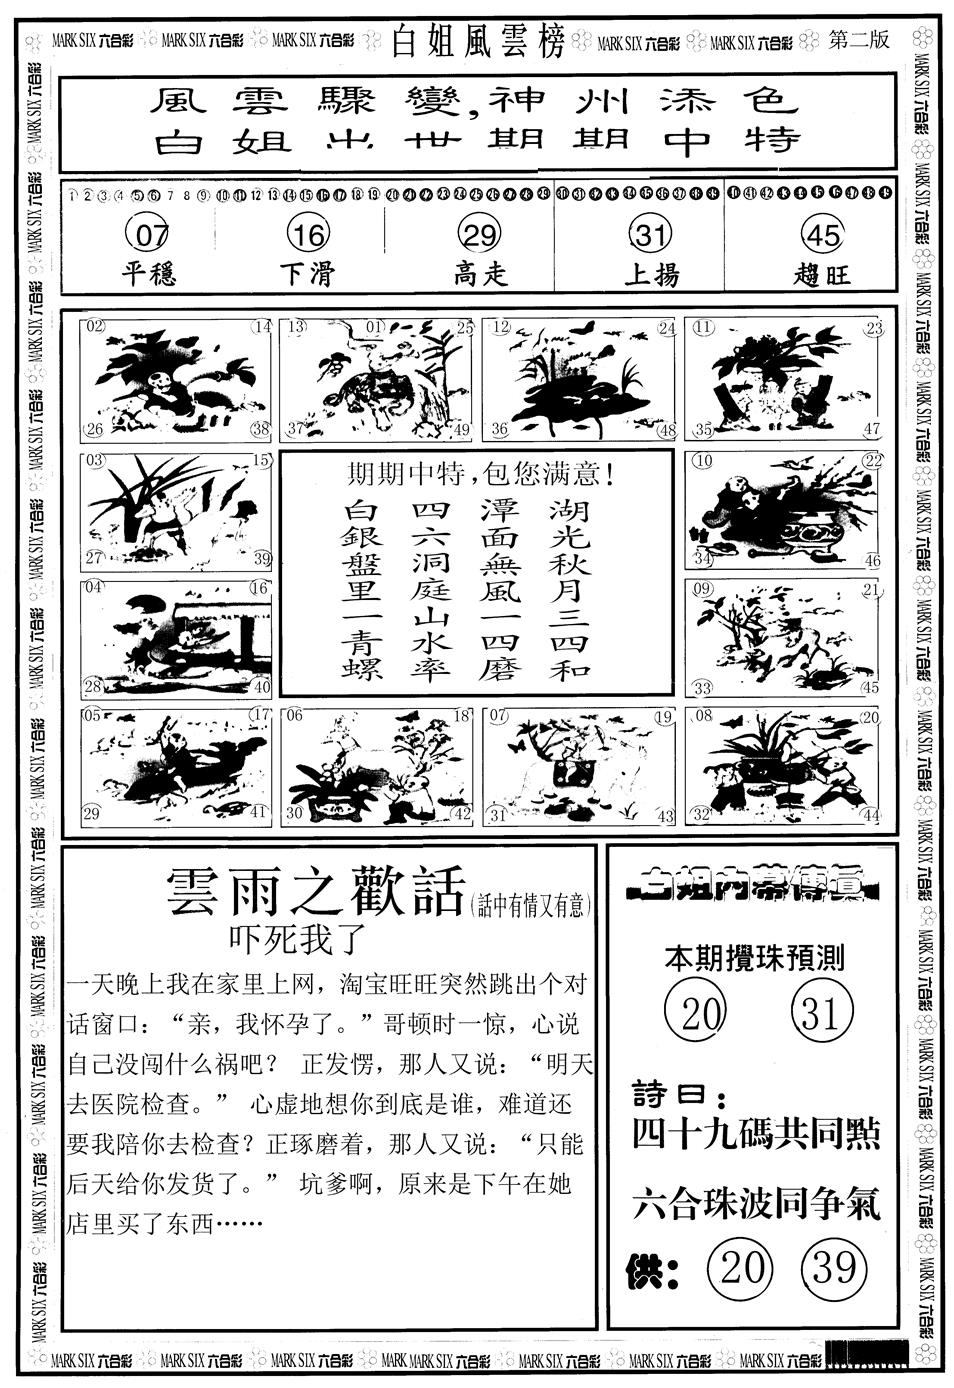 MARK SIX 六合彩 MARK SIX 六合彩 MARK SIX 六合彩 白姐風雲榜 MARK SIX 六合彩 MARK SIX 六合彩 第二版
風雲驟變,神州添色
白姐出世期期中特
1 2 3 4 5 6 7 8 9 10 11 12 13 14 15 16 17 18 19 20 21 22 23 24 25 26 27 28 29 30 31 32 33 34 35 36 37 38 39 40 41 42 43 44 45 46 47 48 49
07 16 29 31 45
平穩 下滑 高走 上揚 趨旺
02 14 13 01 25 12 24 11 23
26 38 37 49 36 48 35 47
03 15
27 39
04 16
28 40
期期中特,包您满意!
湖光秋月三四和
潭面無風一四磨
四六洞庭山水率
白銀盤里一青螺
10 22
34 46
09 21
33 45
05 17 06 18 07 19 08 20
29 41 30 42 31 43 32 44
雲雨之歡話(話中有情又有意)
吓死我了
一天晚上我在家里上网，淘宝旺旺突然跳出个对
话窗口：“亲，我怀孕了。”哥顿时一惊，心说
自己没闯什么祸吧？ 正发愣，那人又说：“明天
去医院检查。” 心虚地想你到底是谁，难道还
要我陪你去检查？正琢磨着，那人又说：“只能
后天给你发货了。” 坑爹啊，原来是下午在她
店里买了东西……
白姐内幕傳真
本期攪珠預測
20 31
詩曰：
四十九碼共同點
六合珠波同争氣
供：20 39
MARK SIX 六合彩 MARK SIX 六合彩 MARK SIX 六合彩 MARK MARK SIX 六合彩 MARK SIX 六合彩 MARK SIX 六合彩 MARK SIX 六合彩